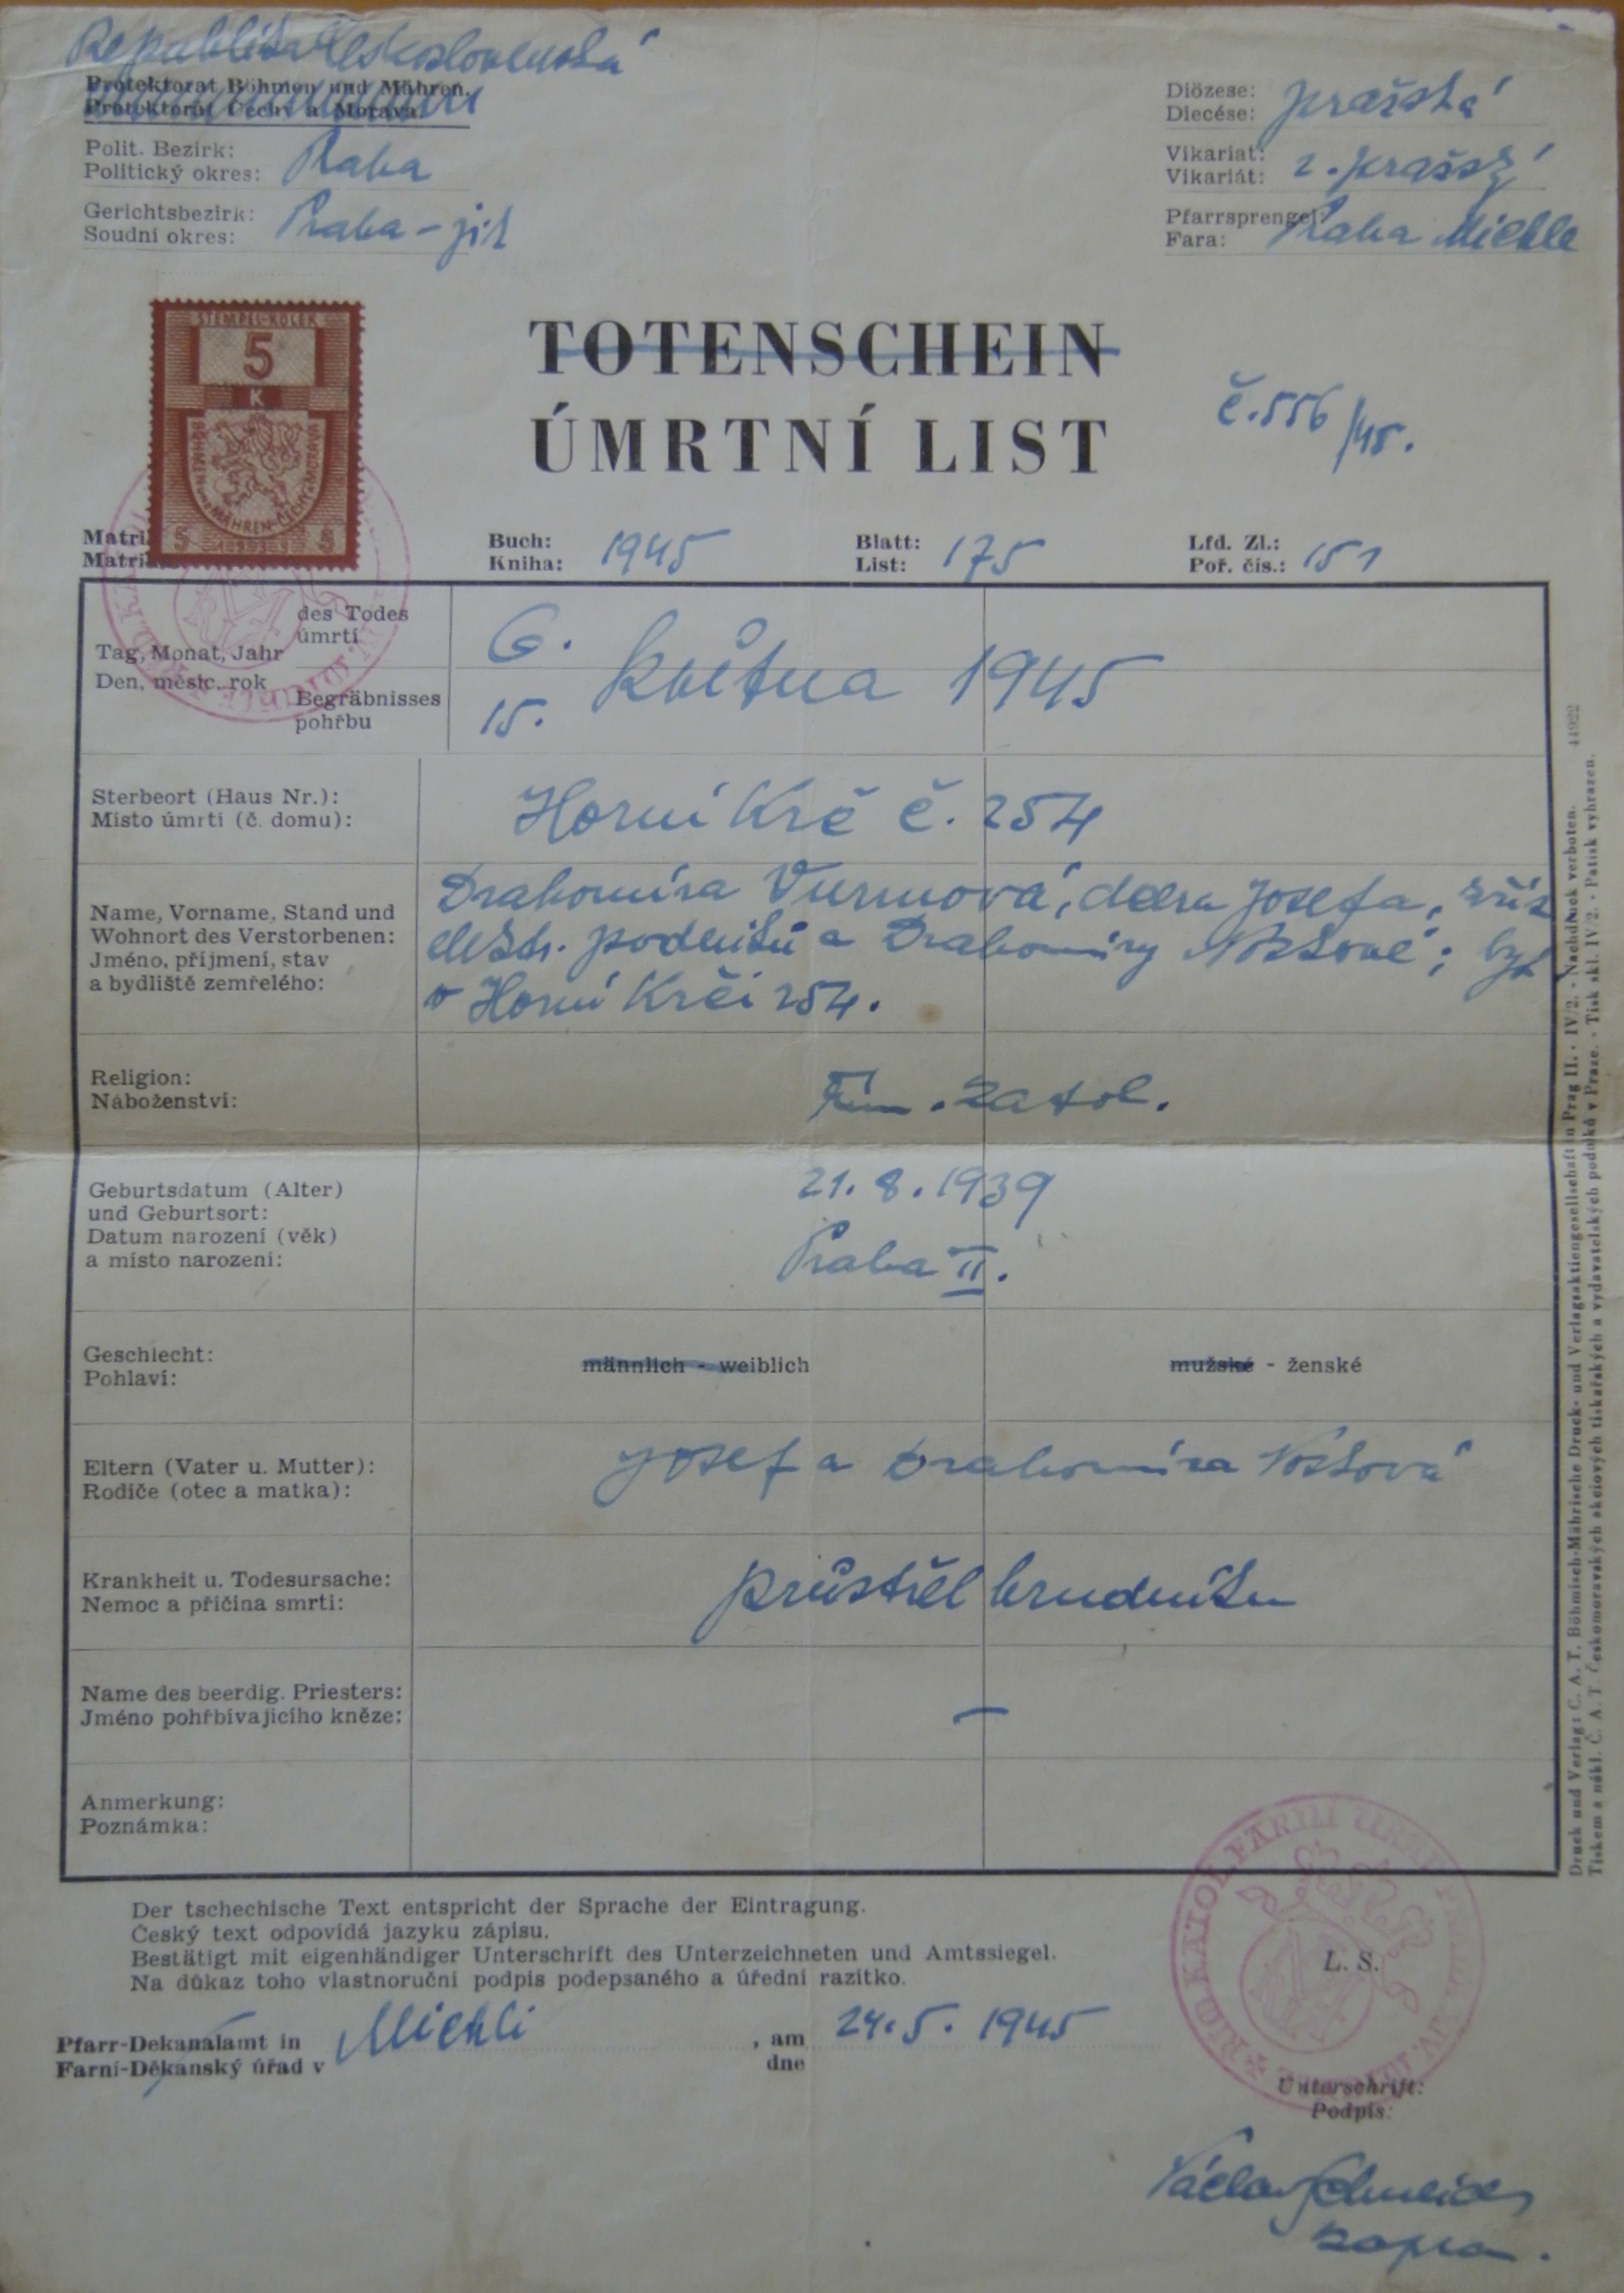 Republika Československá
Protektorat Böhmen und Mähren.
Protektorát Čechy a Morava.
Polit. Bezirk:
Politický okres: Praha
Gerichtsbezirk:
Soudní okres: Praha - jih
Diözese:
Diecése: pražská
Vikariat:
Vikariát: 2. pražský
Pfarrsprengel:
Fara: Praha Michle
STEMPEL-KOLEK
5
K
BÖHMEN und MÄHREN-ČECHY a MORAVA
5 1939 5
TOTENSCHEIN
ÚMRTNÍ LIST
č. 556/45.
Buch:
Kniha: 1945
Blatt:
List: 175
Lfd. Zl.:
Poř. čís.: 151
Tag, Monat, Jahr
Den, měsíc, rok
des Todes
úmrtí
6.
Begräbnisses
pohřbu
15.
května 1945
Sterbeort (Haus Nr.):
Místo úmrtí (č. domu):
Horní Krč č. 254
Name, Vorname, Stand und
Wohnort des Verstorbenen:
Jméno, příjmení, stav
a bydliště zemřelého:
Drahomíra Vurmová, dcera Josefa, zříz
elektr. podniků a Drahomíry; byt
v Horní Krči 254.
Religion:
Náboženství:
řím. katol.
Geburtsdatum (Alter)
und Geburtsort:
Datum narození (věk)
a místo narození:
21. 8. 1939
Praha II.
Geschlecht:
Pohlaví:
männlich - weiblich
mužské - ženské
Eltern (Vater u. Mutter):
Rodiče (otec a matka):
Josef a Drahomíra
Krankheit u. Todesursache:
Nemoc a příčina smrti:
průstřel hrudníku
Name des beerdig. Priesters:
Jméno pohřbívajícího kněze:
—
Anmerkung:
Poznámka:
Der tschechische Text entspricht der Sprache der Eintragung.
Český text odpovídá jazyku zápisu.
Bestätigt mit eigenhändiger Unterschrift des Unterzeichneten und Amtssiegel.
Na důkaz toho vlastnoruční podpis podepsaného a úřední razítko.
L. S.
Pfarr-Dekanalamt in
Farní-Děkanský úřad v Michli
, am
dne
24. 5. 1945
Unterschrift:
Podpis:
Václav Schneider
kapla.
Druck und Verlag: C. A. T. Böhmisch-Mährische Druck- und Verlagsaktiengesellschaft in Prag II. - IV/2. - Nachdruck verboten. 44922
Tiskem a nákl. Č. A. T. Českomoravských akciových tiskařských a vydavatelských podniků v Praze. - Tisk skl. IV/2. - Patisk vyhrazen.